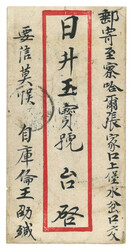 郵寄至察哈爾張家口上堡水公口元
日升玉寶號台啓
要信莫悮
自庫倫王助緘